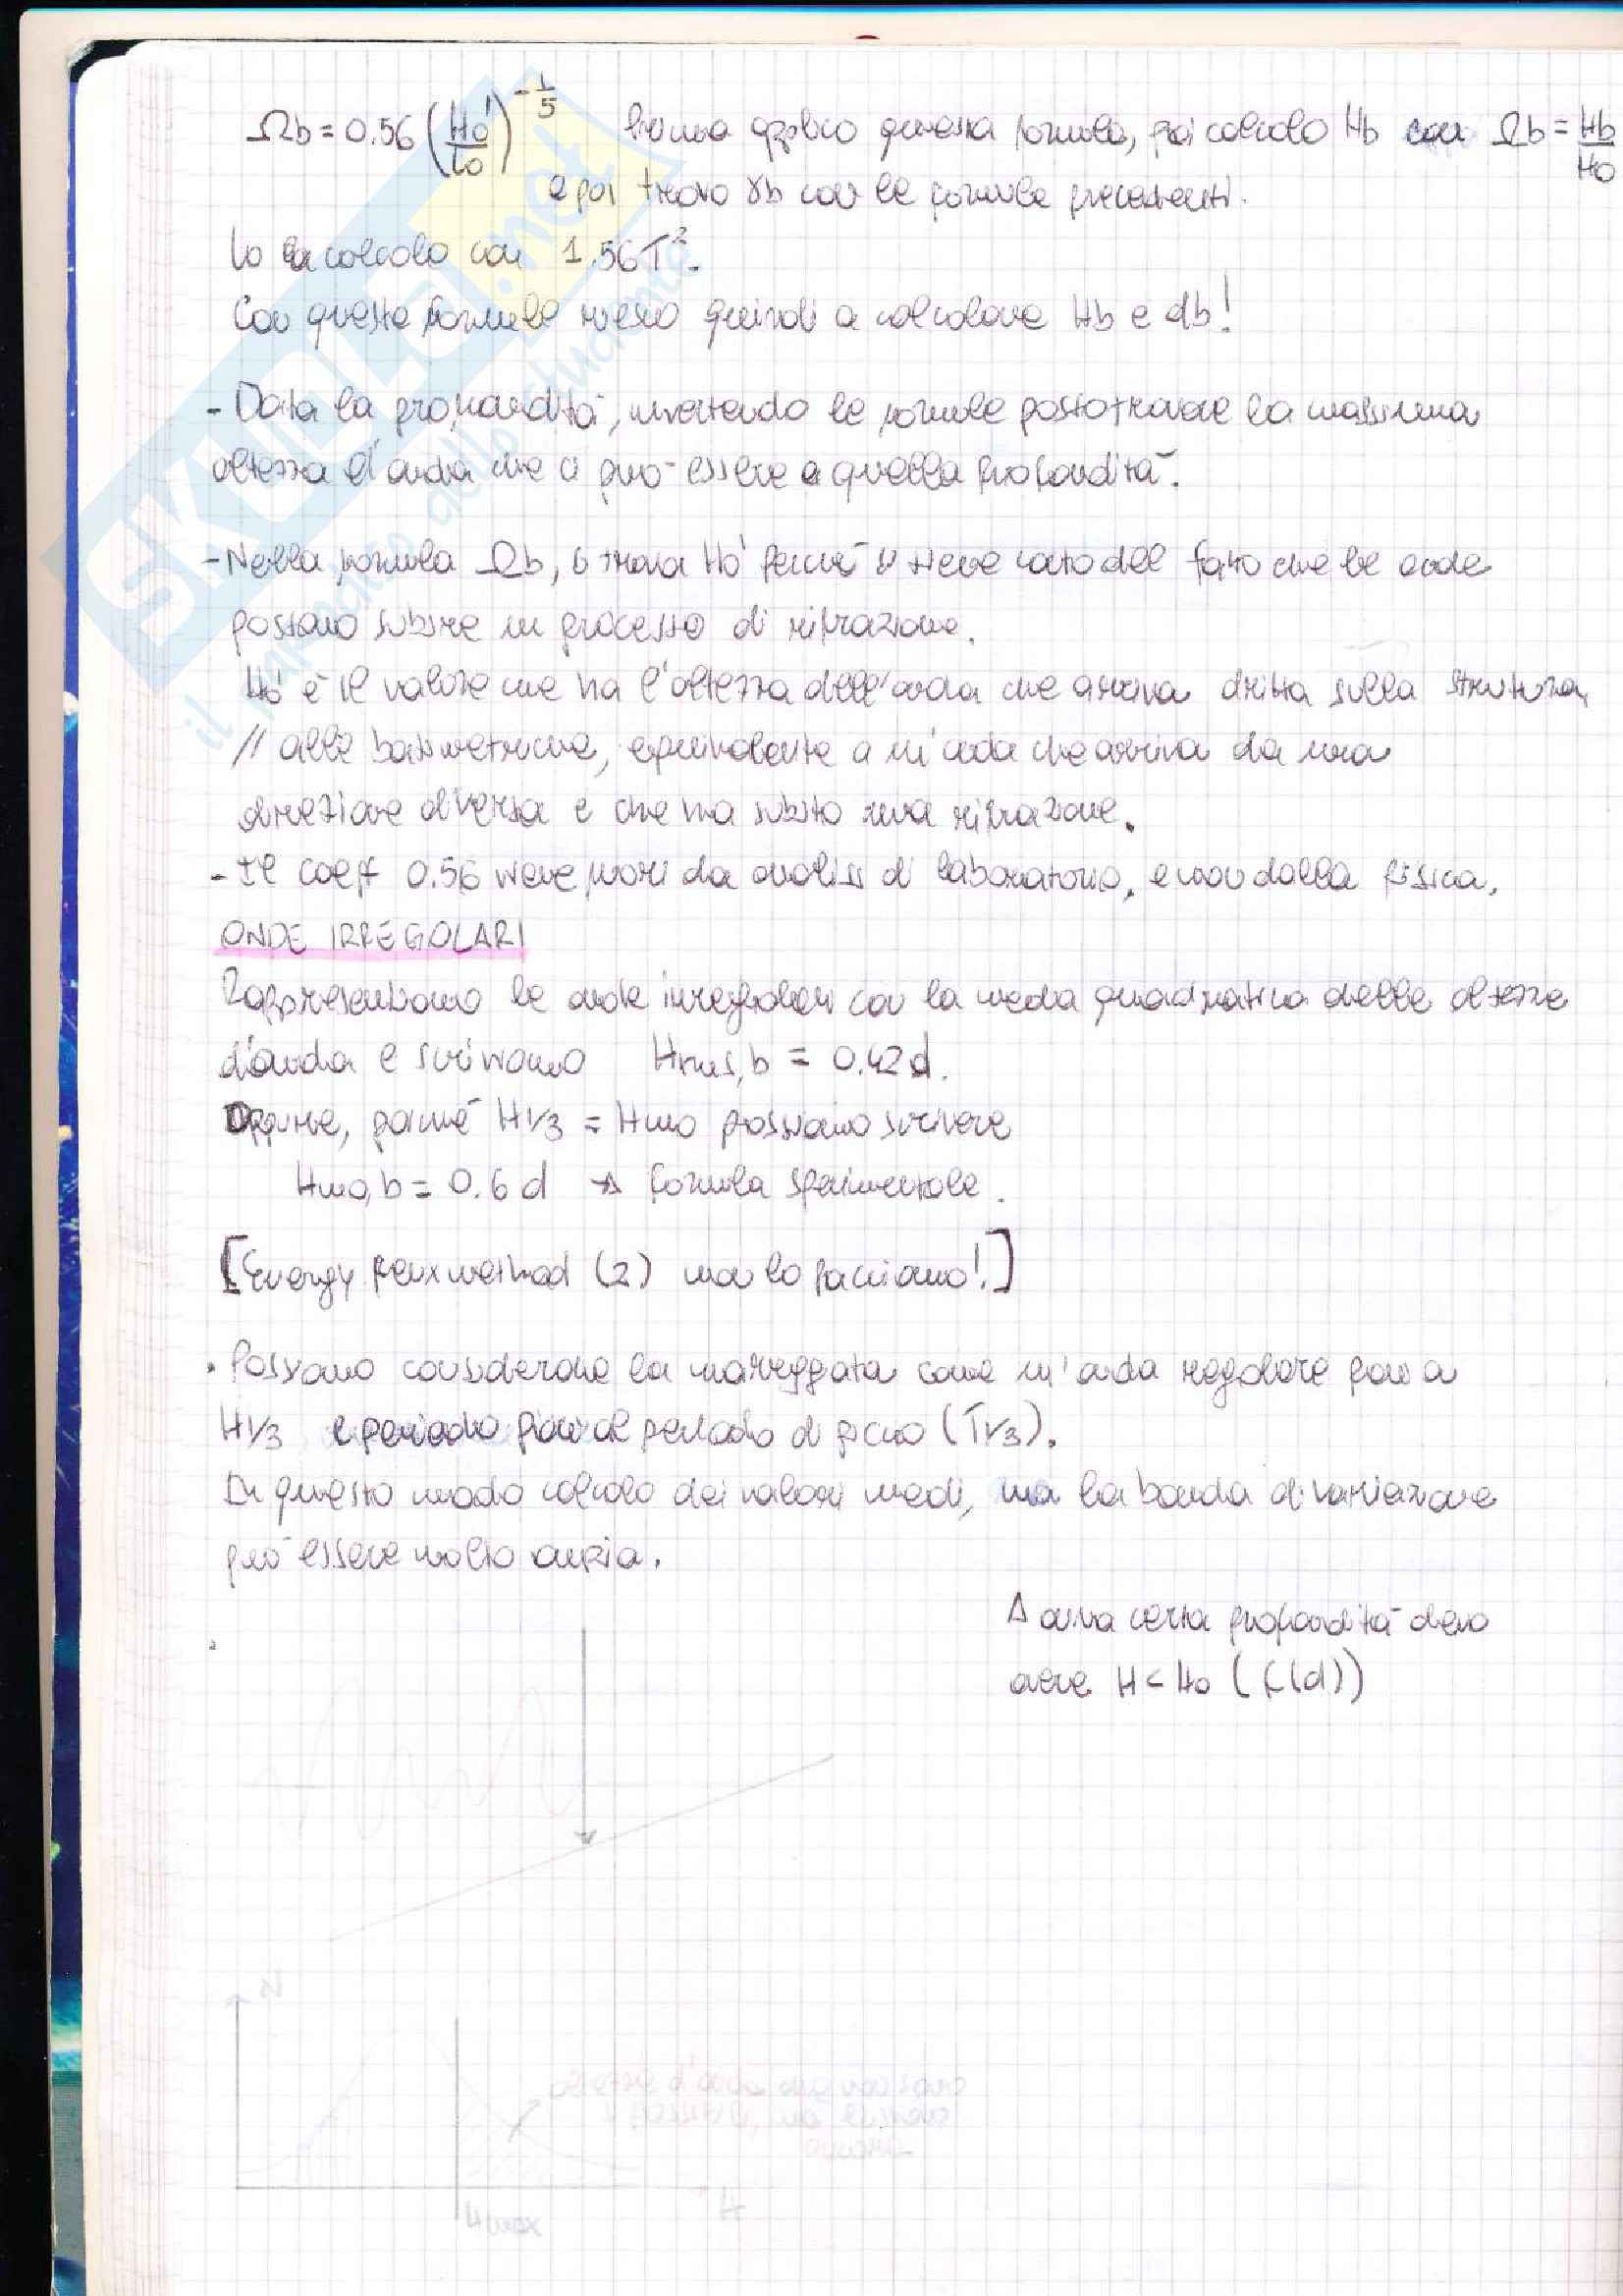 Ωb = 0.56 (Ho'/Lo)^-1/5 Prima applico questa formula, poi calcolo Hb con Ωb = Hb/Ho
e poi trovo γb con le formule precedenti.
Lo la calcolo con 1.56T².
Con queste formule riesco quindi a calcolare Hb e db!
- Data la profondità, invertendo le formule posso trovare la massima
altezza d'onda che ci può essere a quella profondità.
- Nella formula Ωb, si trova Ho' perché si tiene conto del fatto che le onde
possano subire un processo di rifrazione.
Ho' è il valore che ha l'altezza dell'onda che arriva dritta sulla struttura,
// alle batimetriche, equivalente a un'onda che arriva da una
direzione diversa e che ha subito una rifrazione.
- Il coeff 0.56 viene fuori da analisi di laboratorio, e non dalla fisica.
ONDE IRREGOLARI
Rappresentiamo le onde irregolari con la media quadratica delle altezze
d'onda e scriviamo Hrms,b = 0.42d.
Oppure, poiché H1/3 = Hmo possiamo scrivere
Hmo,b = 0.6 d → formula sperimentale.
[Energy flux method (2) non lo facciamo!]
• Possiamo considerare la mareggiata come un'onda regolare pari a
H1/3 e periodo pari al periodo di picco (T1/3).
In questo modo calcolo dei valori medi, ma la banda di variazione
può essere molto ampia.
A una certa profondità devo
avere H < Ho (f(d))
N
altezze d'onda che non sono
Hmax
H
SKUOLA.net
il paradiso dello studente